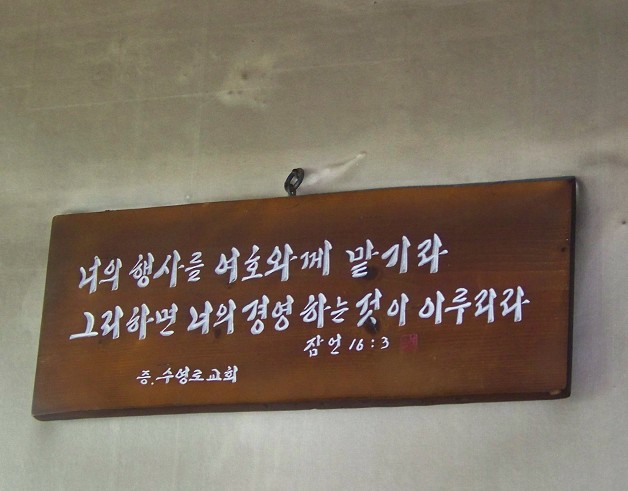 너의 행사를 여호와께 맡기라
그리하면 너의 경영하는 것이 이루리라
잠언 16:3
증. 수영로교회